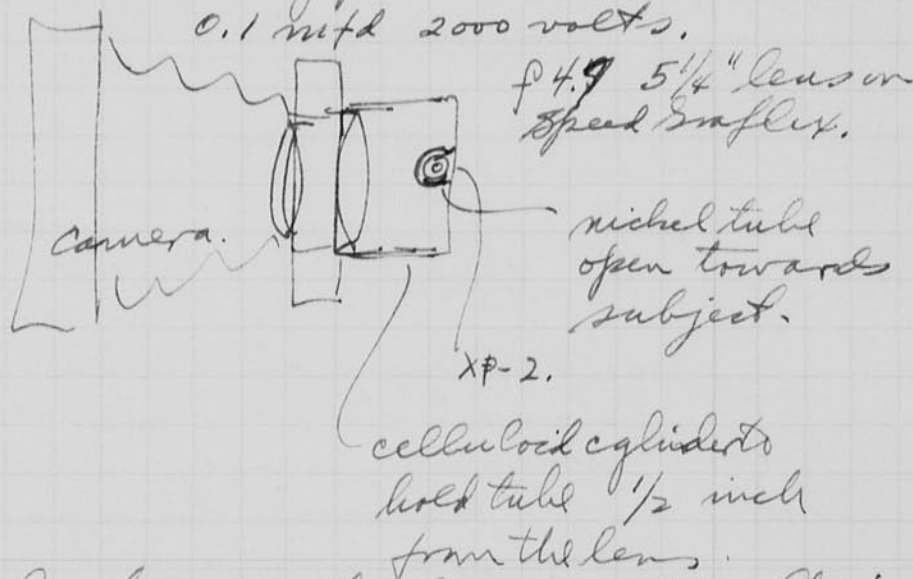 0.1 mfd 2000 volts.
f 4.7 5 1/4" lens on
Speed Graflex.
nickel tube
open towards
subject.
Camera.
XP-2.
celluloid cylinder to
hold tube 1/2 inch
from the lens.